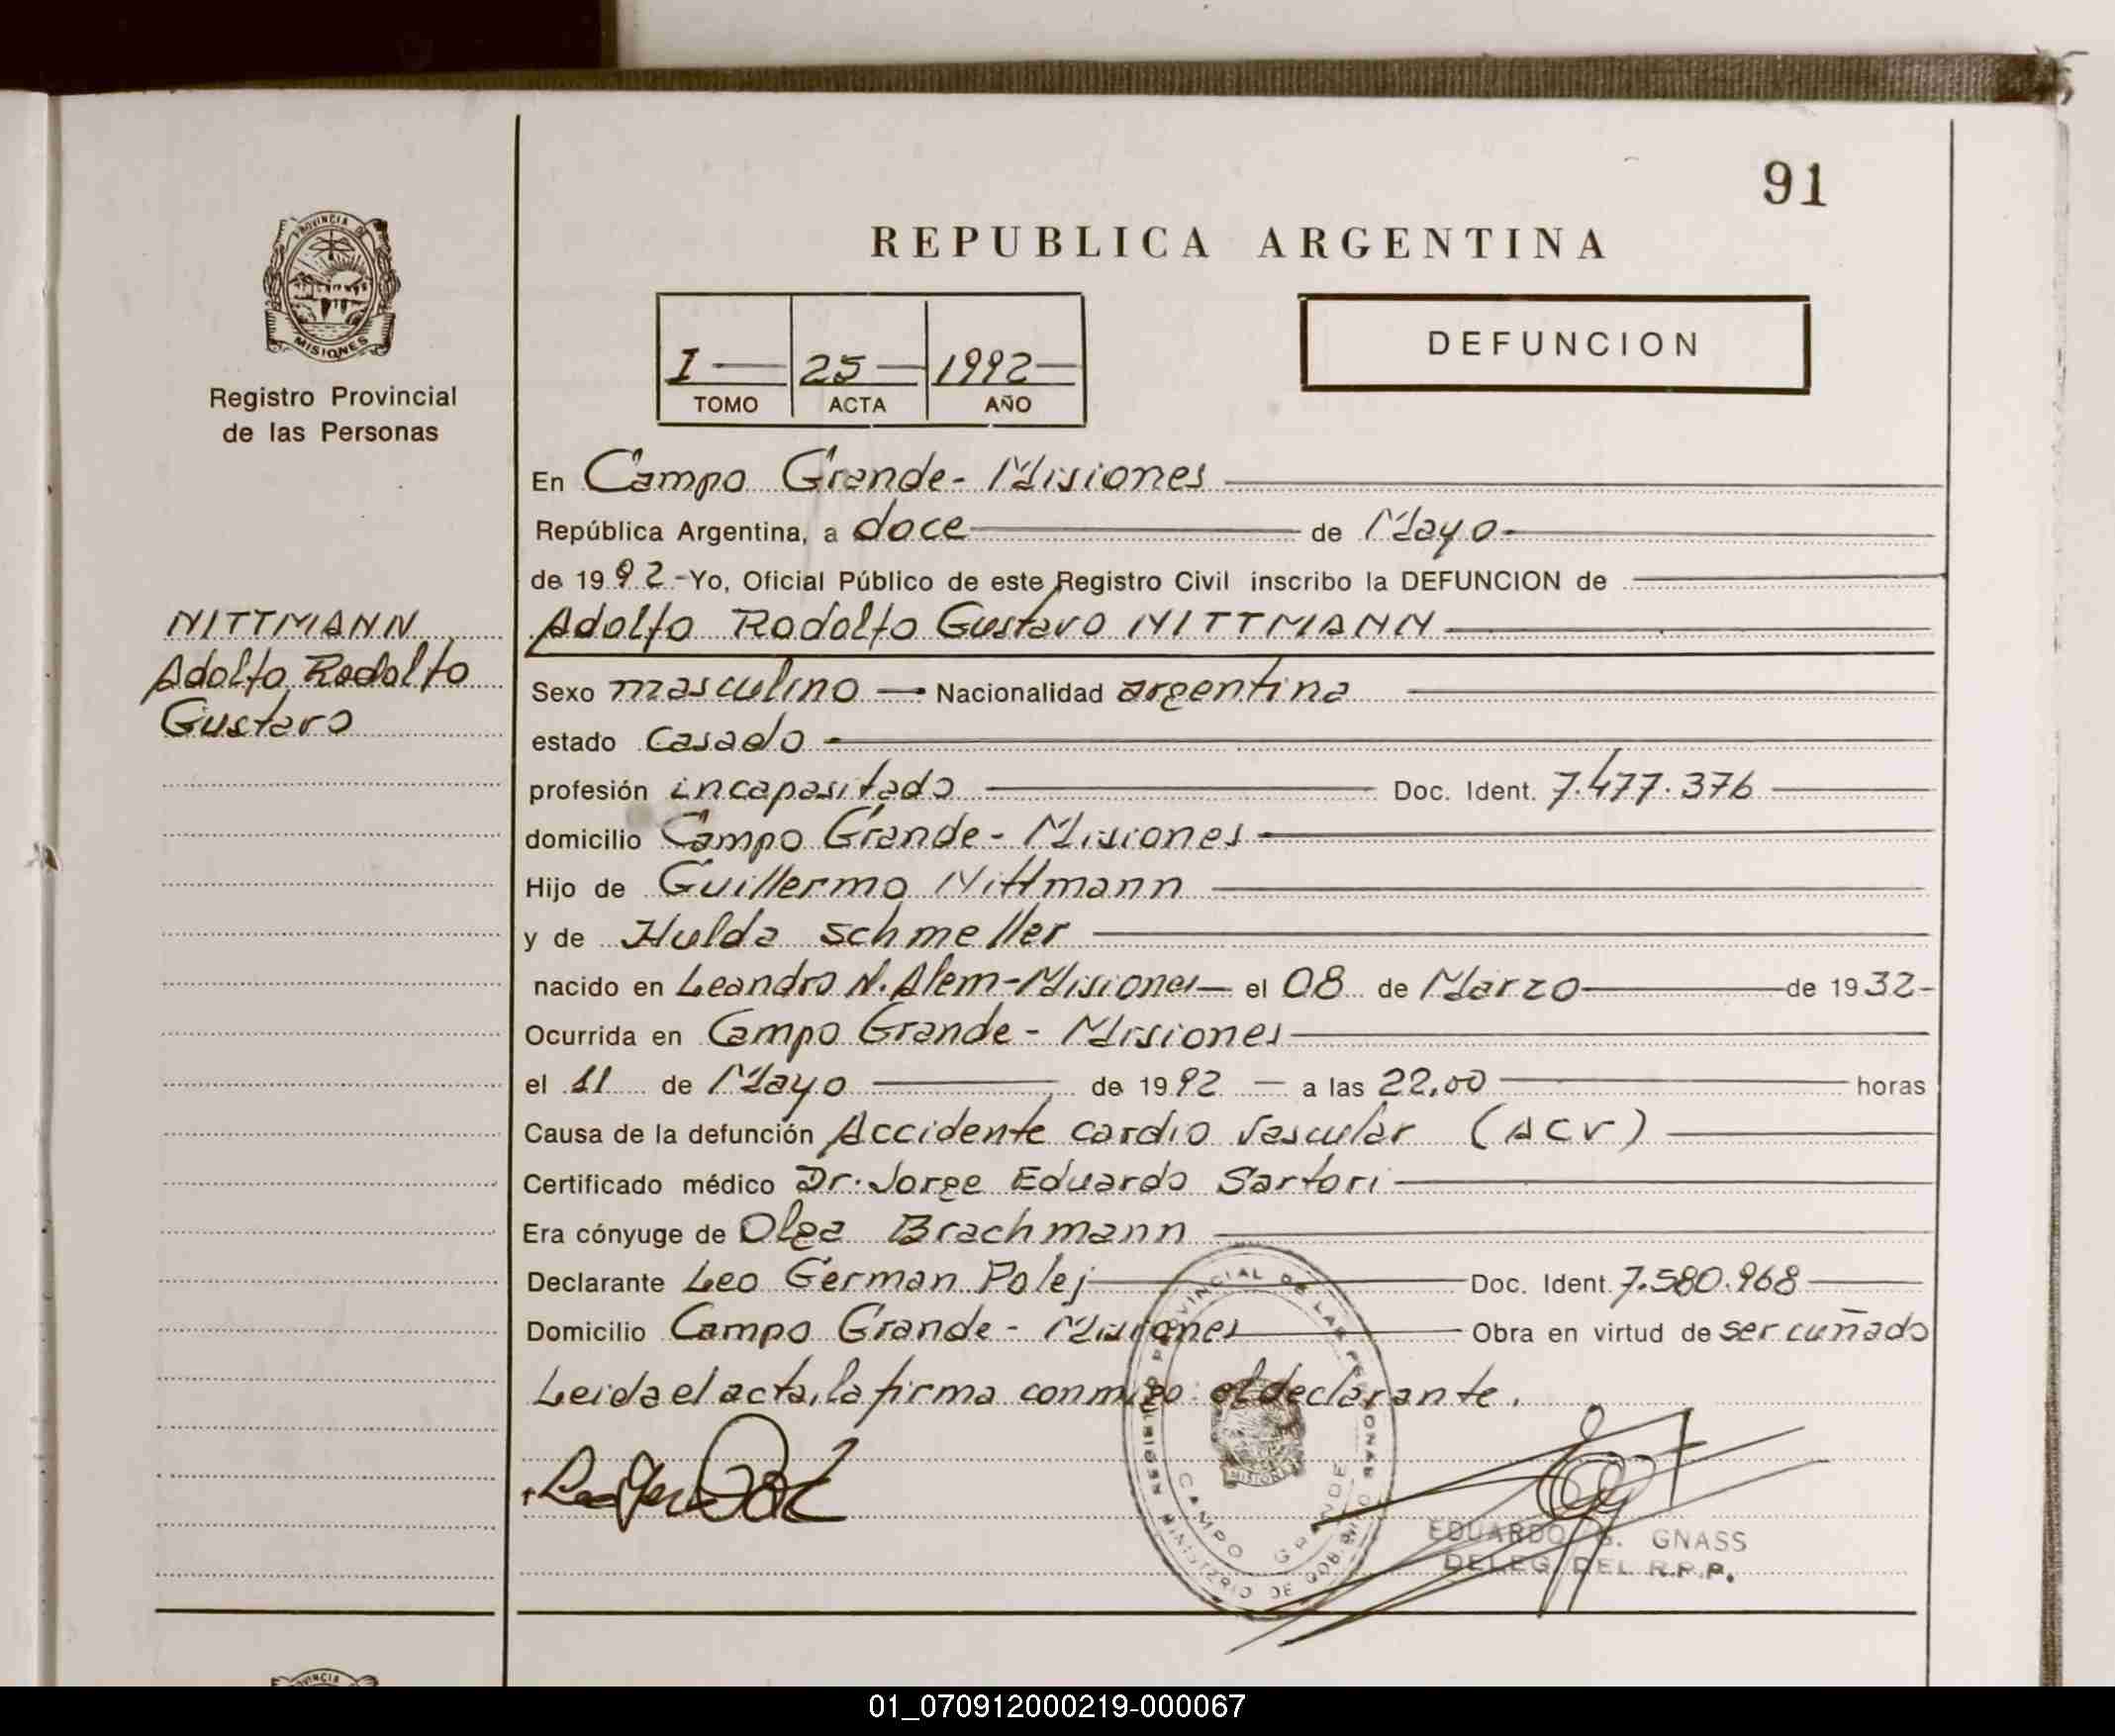 91
PROVINCIA DE
MISIONES
Registro Provincial
de las Personas
REPUBLICA ARGENTINA
I
25
1992
TOMO
ACTA
AÑO
DEFUNCION
En Campo Grande - Misiones
República Argentina, a doce de Mayo
de 1992 - Yo, Oficial Público de este Registro Civil inscribo la DEFUNCION de
NITTMANN
Adolfo Rodolfo
Gustavo
Adolfo Rodolfo Gustavo NITTMANN
Sexo masculino Nacionalidad argentina
estado casado
profesión incapasitado Doc. Ident. 7.477.376
domicilio Campo Grande - Misiones
Hijo de Guillermo Nittmann
y de Hulda schmeller
nacido en Leandro N. Alem - Misiones el 08 de Marzo de 1932
Ocurrida en Campo Grande - Misiones
el 11 de Mayo de 1992 a las 22,00 horas
Causa de la defunción Accidente cardio vascular (ACV)
Certificado médico Dr. Jorge Eduardo Sartori
Era cónyuge de Olga Brachmann
Declarante Leo German Polej Doc. Ident. 7.580.968
Domicilio Campo Grande - Misiones Obra en virtud de ser cuñado
Leida el acta, la firma conmigo el declarante.
REGISTRO PROVINCIAL DE LAS PERSONAS
MISIONES
CAMPO GRANDE
MINISTERIO DE GOBIERNO
EDUARDO GNASS
DELEG. DEL R.P.P.
01_070912000219-000067